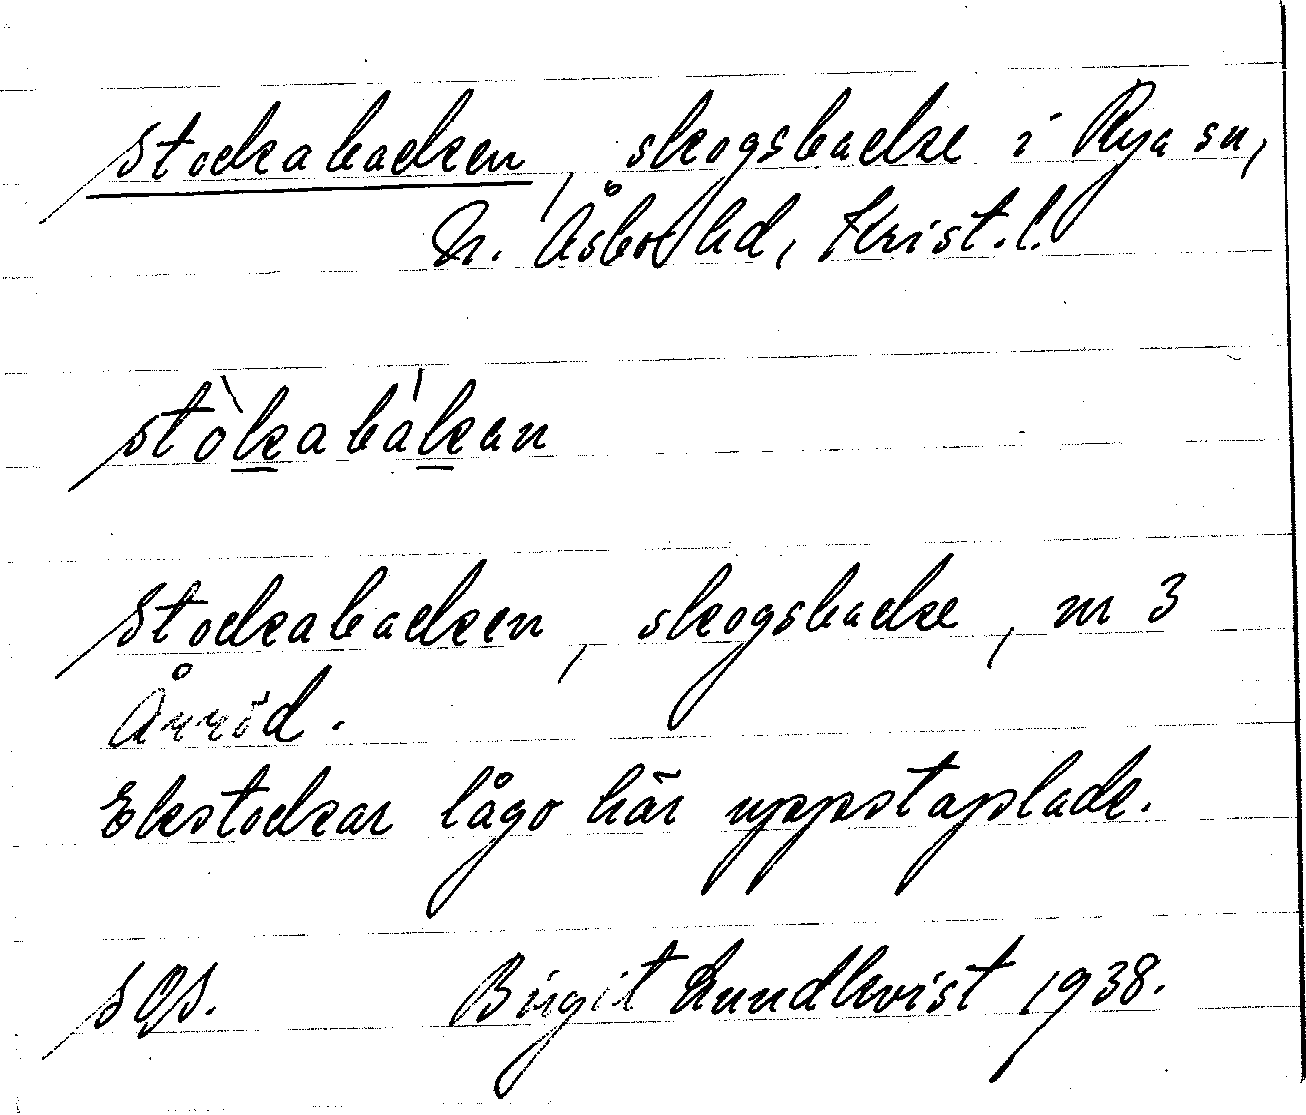 Stockabacken, skogsbacke i Rya sn,
N. Åsbo hd, Krist. l.
stòkabákan
Stockabacken, skogsbacke, nr 3
Årröd.
Ekstockar lågo här uppstaplade.
SOS. Birgit Lundkvist 1938.